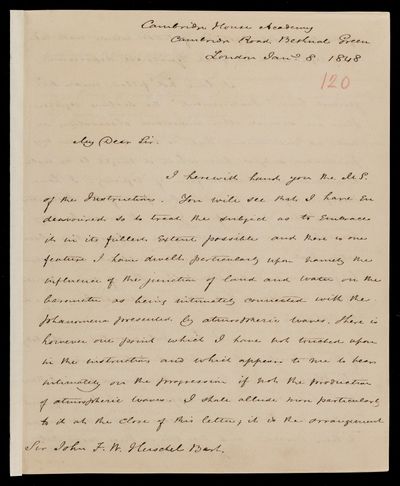 Cambridge House Academy
Cambridge Road Bethnal Green
London Jany. 8 1848
120
My Dear Sir.
I herewith hand you the M.S.
of the Instructions. You will see that I have en
deavoured so to treat the subject as to embrace
it in its fullest extent possible and there is one
feature I have dwelt particularly upon namely the
influence of the junction of land and water on the
barometer as being intimately connected with the
phænomena presented by atmospheric waves. There is
however one point which I have not touched upon
in the instructions and which appears to me to bear
intimately on the progression if not the production
of atmospheric waves. I shall allude more particularly
to it at the close of this letter, it is the arrangement
Sir John F. W. Herschel Bart.